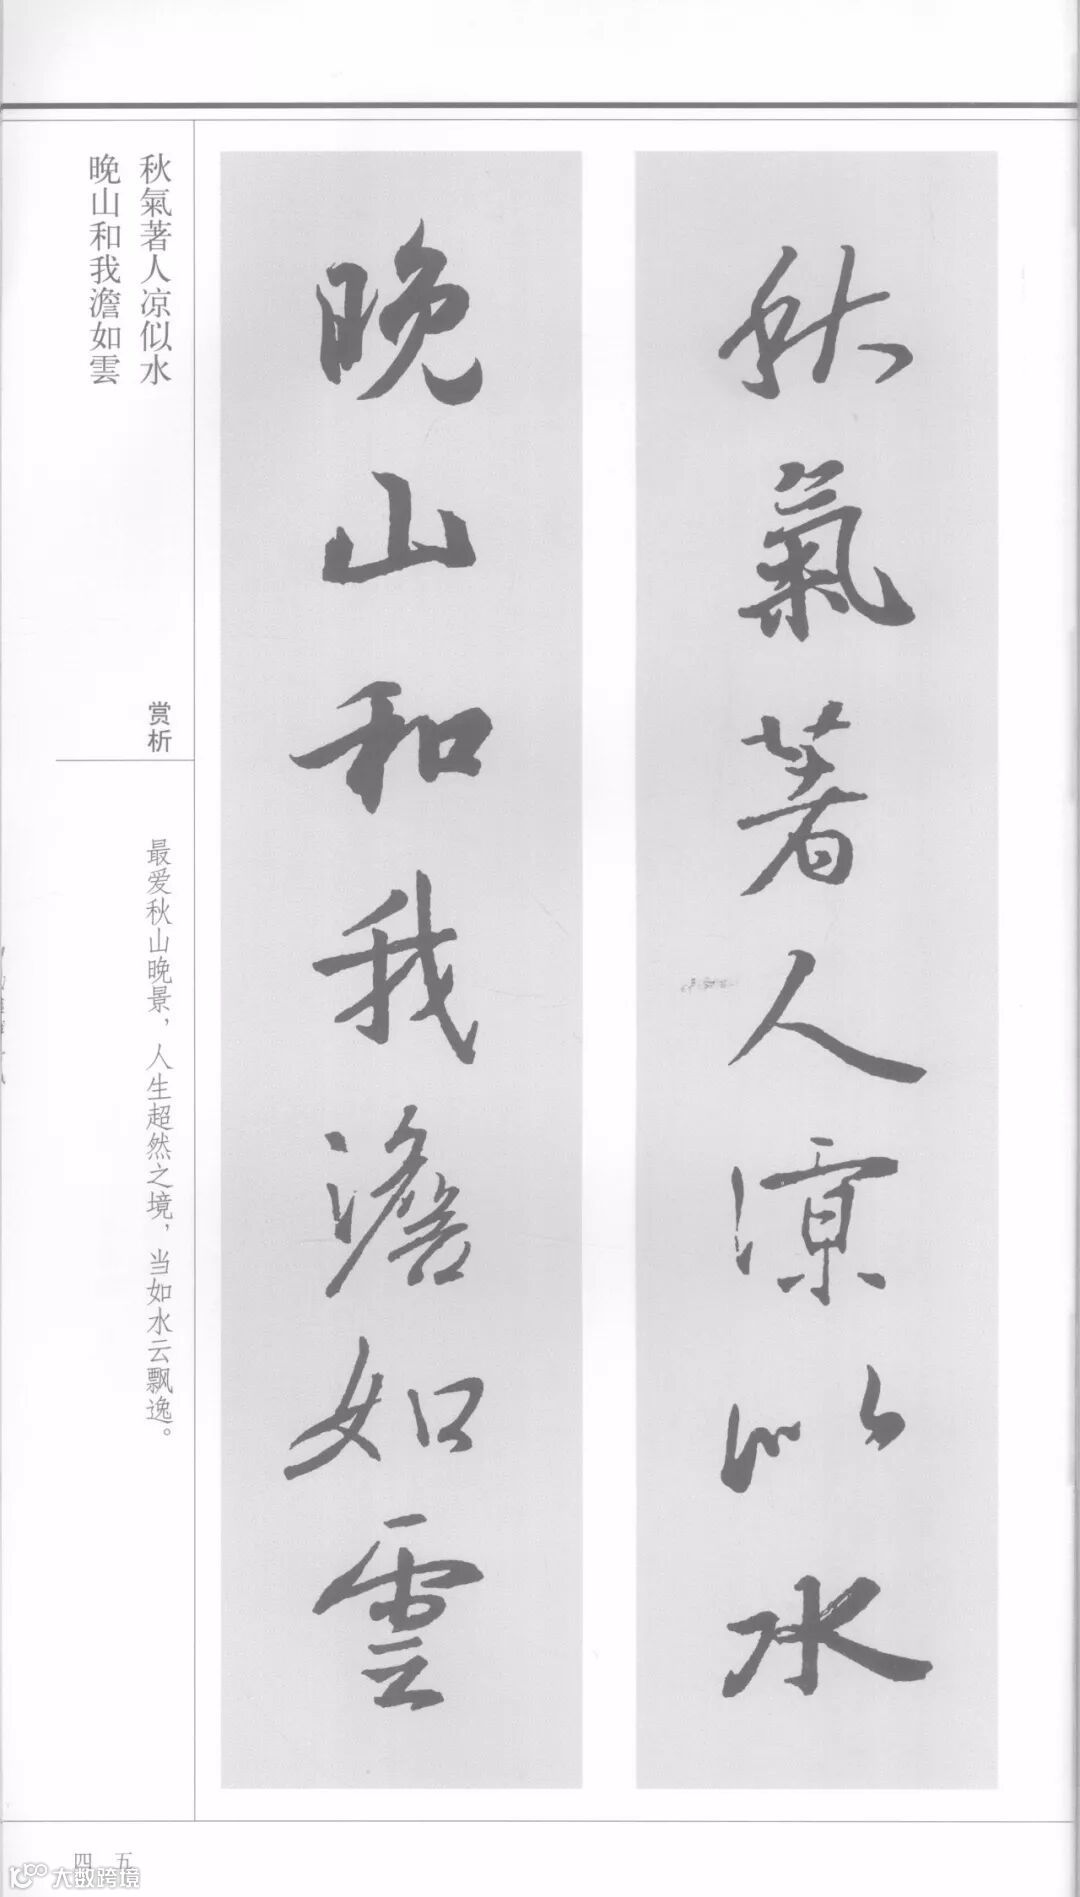 秋氣著人凉似水
晚山和我澹如雲
秋氣著人凉似水
晚山和我澹如雲
赏析
最爱秋山晚景，人生超然之境，当如水云飘逸。
四五
大数跨境